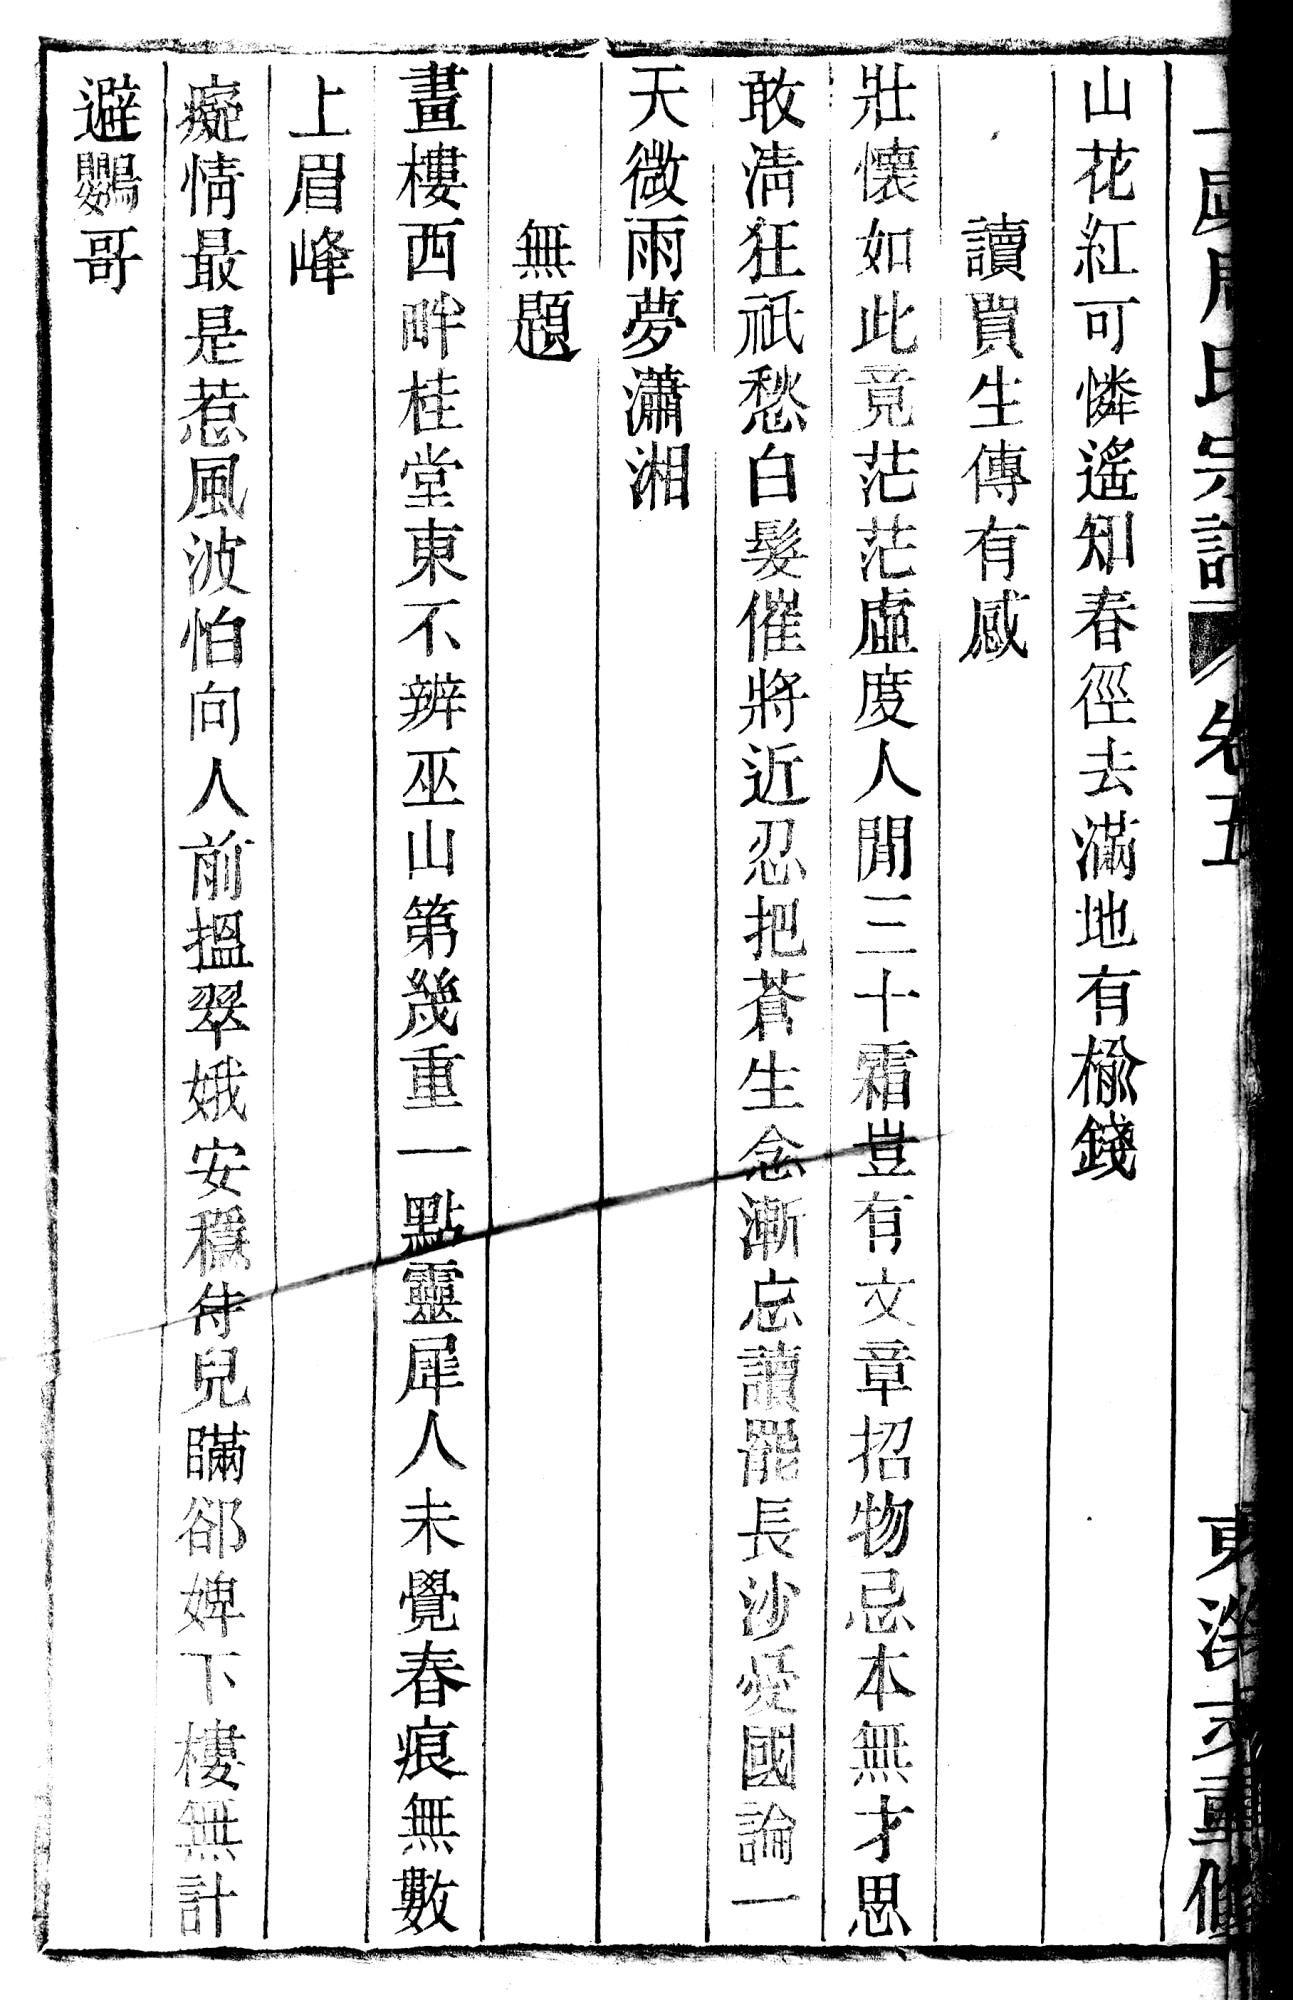 氏宗譜 卷五 東 支重修
山花紅可憐遙知春徑去滿地有榆錢
讀賈生傳有感
壯懷如此竟茫茫虛度人閒三十霜豈有文章招物忌本無才思
敢淸狂祇愁白髮催將近忍把蒼生念漸忘讀罷長沙憂國論一
天微雨夢瀟湘
無題
畫樓西畔桂堂東不辨巫山第幾重一點靈犀人未覺春痕無數
上眉峰
癡情最是惹風波怕向人前搵翠娥安穩侍兒瞞郤婢下樓無計
避鸚哥